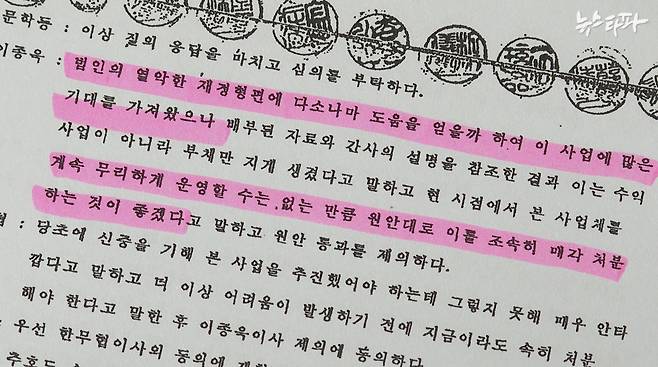 뉴스타파
문학동 : 이상 질의 응답을 마치고 심의를 부탁하다.
이종욱 : 법인의 열악한 재정형편에 다소나마 도움을 얻을까 하여 이 사업에 많은
기대를 가져왔으나 배부된 자료와 간사의 설명을 참조한 결과 이는 수익
사업이 아니라 부채만 지게 생겼다고 말하고 현 시점에서 본 사업체를
계속 무리하게 운영할 수는 없는 만큼 원안대로 이를 조속히 매각 처분
하는 것이 좋겠다고 말하고 원안 통과를 제의하다.
협 : 당초에 신중을 기해 본 사업을 추진했어야 하는데 그렇지 못해 매우 안타
깝다고 말하고 더 이상 어려움이 발생하기 전에 지금이라도 속히 처분
해야 한다고 말한 후 이종욱이사 제의에 동의하다.
: 우선 한무협이사의 동의에